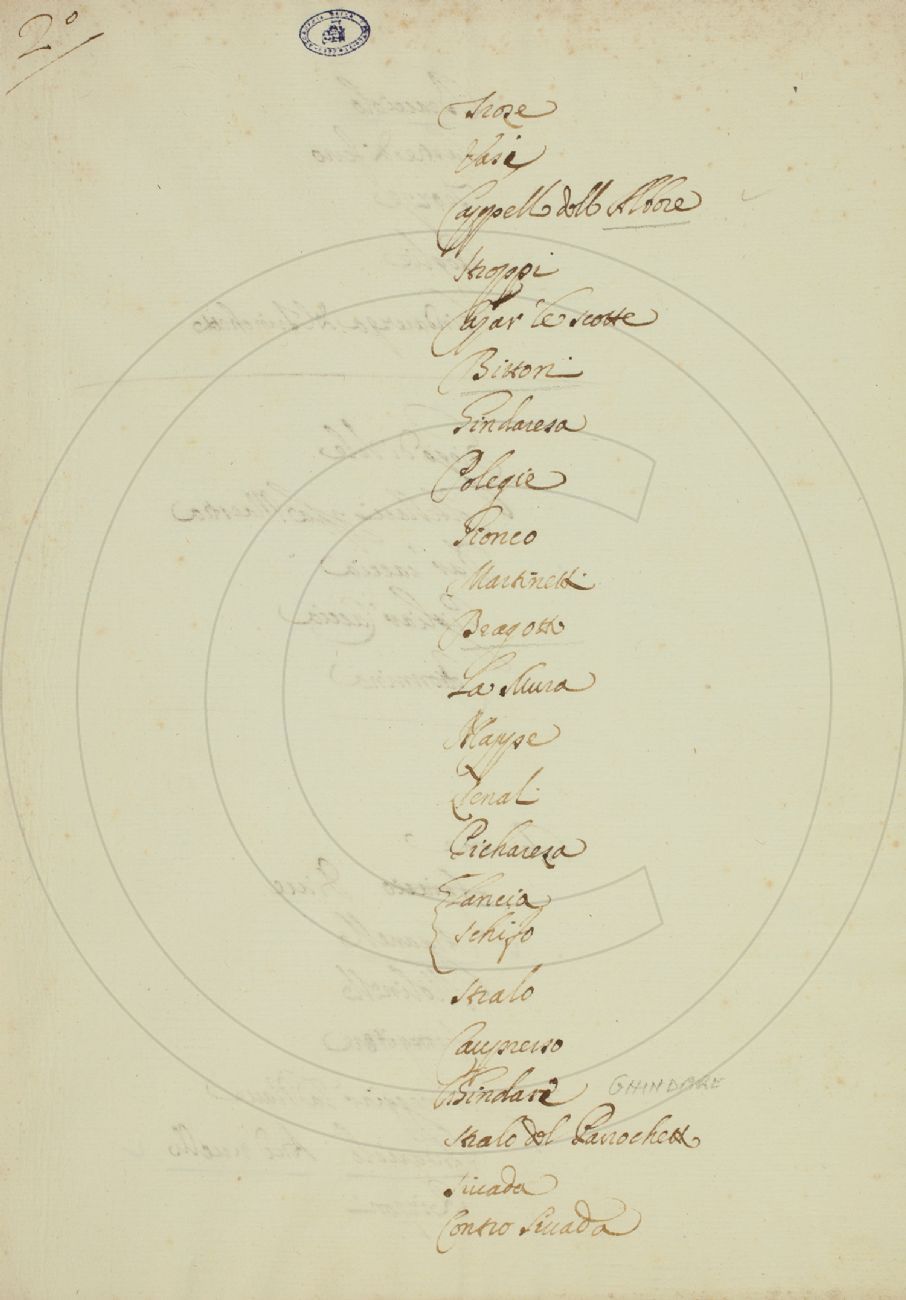 2°
Troze
Vasi
Cappello dell Albore
Stroppi
Cazar le scotte
Bittoni
Gindaresa
Polegie
Fionco
Martinetti
Bragotto
La Mura
Mappe
Penal
Gicharesa
Lancia
Schifo
Stralo
Caupresso
Ghindare GHINDARE
Stralo del Parrochetto
Sivada
Contro Sivada